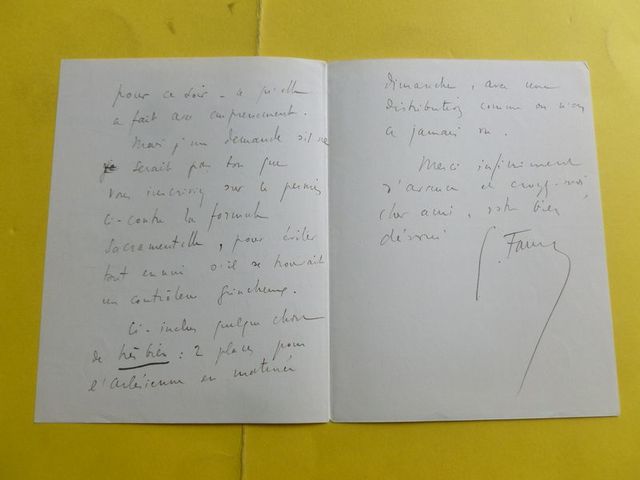 pour ce soir – ce qu'elle
a fait avec empressement.
Mais j'me demande s'il ne
serait pas bon que
vous inscriviez sur le permis
ci-contre la formule
sacramentelle, pour éviter
tout ennui s'il se trouvait
un contrôleur grincheux.
Ci-inclus quelque chose
de très bien : 2 places pour
l'Arlésienne en matinée
dimanche, avec une
distribution comme on n'en
a jamais vu.
Merci infiniment
d'avance et croyez-moi
cher ami, votre bien
dévoué